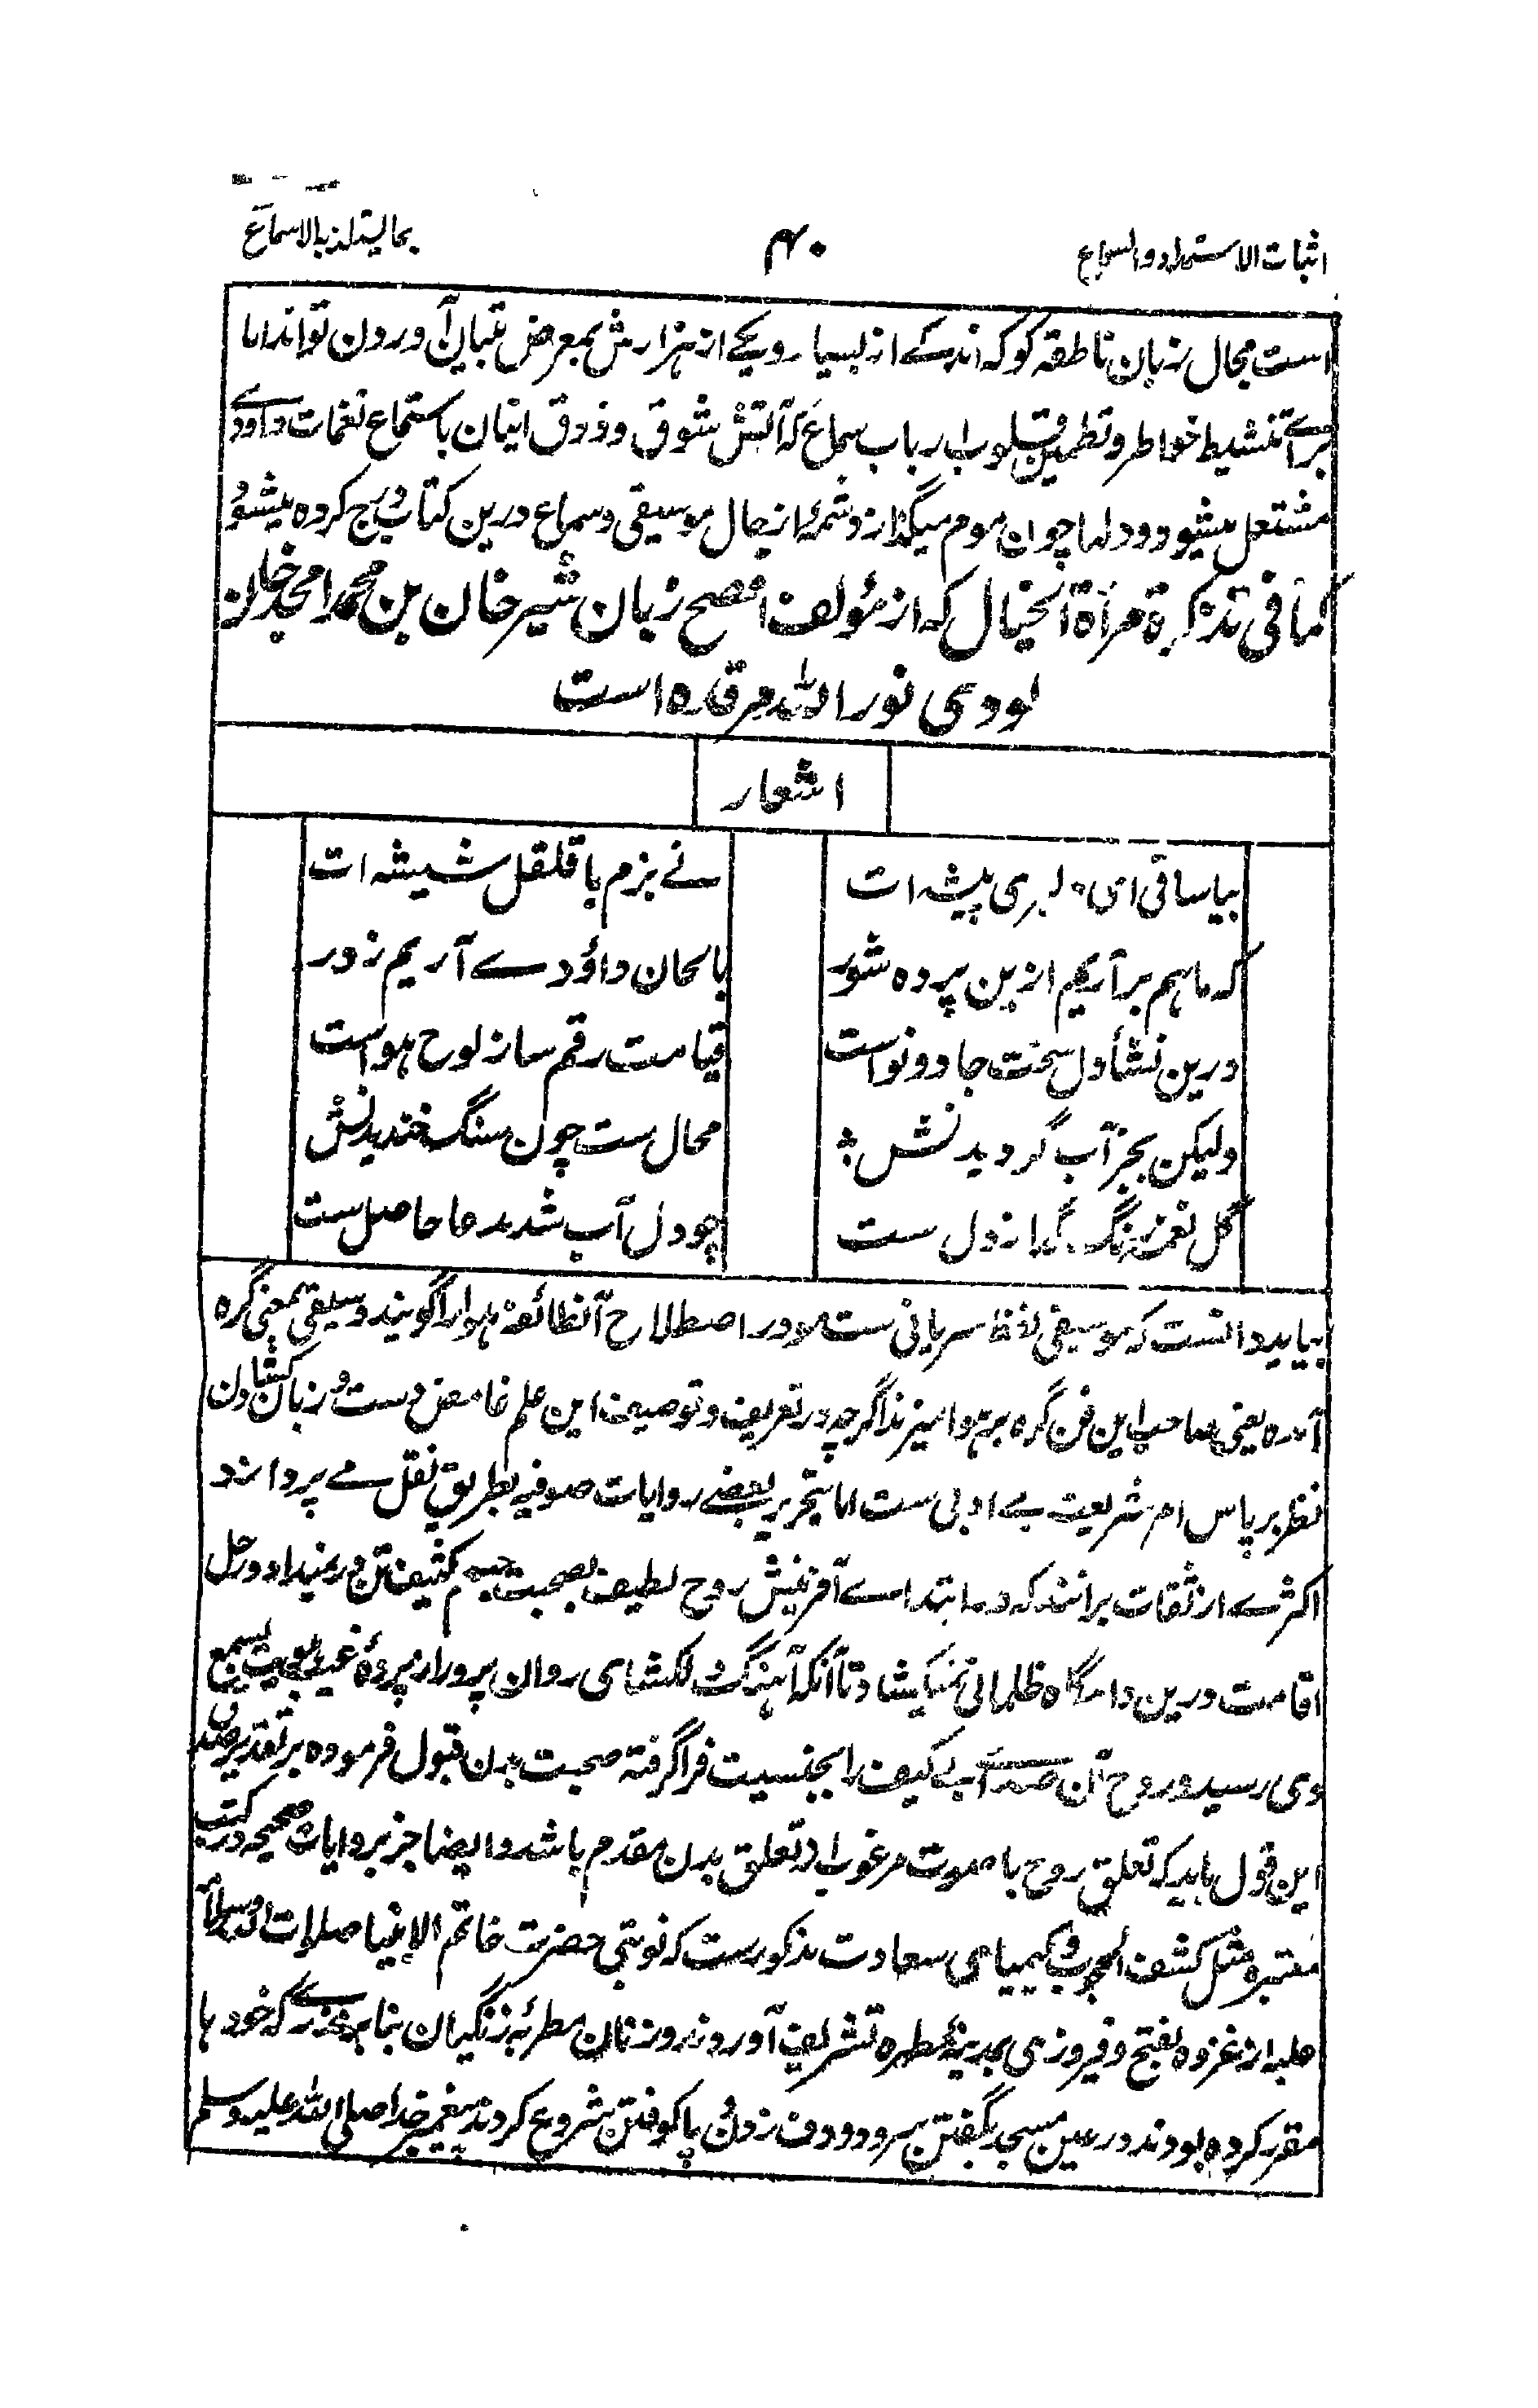 اثبات الاستمداد والسماع ۴۰ بما یستلذ بالاسماع
است مجال زبان ناطقه کو که اندکے از بسیار و یکے از هزارش بمعرض تبیان آوردن تواند اما
برائے تنشیط خواطر و تطمین قلوب ارباب سماع که آتش شوق و ذوق اینان باستماع نغمات داودی
مشتعل میشود و دلها چون موم میگدازد شمۀ از حال موسیقی و سماع درین کتاب درج کرده میشود
کما فی تذکرة مرأة الخیال که از مؤلف افصح زبان شیر خان بن محمد امجد خان
لودی نور الله مرقده است
اشعار
بیا ساقی ای دلبری پیشه ات نے بزم با قلقل شیشه ات
که ما هم برآریم ازین پرده شور بالحان داؤدے آریم زور
درین نشأ دل سخت جادو نواست قیامت رقم ساز لوح هواست
ولیکن بجز آب گردیدنش ؛ محال ست چون سنگ خندیدنش
گل نغمه نیرنگ از دل ست چو دل آب شد مدعا حاصل ست
بباید دانست که موسیقی لفظ سریانی ست مو در اصطلاح آنطائفه هوا را گویند و سیقی بمعنی گره
آمده یعنی صاحب این فن گره بر هوا میزند اگرچه در تعریف و توصیف این علم غامض دست و زبان کشادن
نظر بر پاس ام شریعت بے ادبی ست اما بتحریر بعضے روایات صوفیه بطریق نقل مے پردازد
اکثرے از ثقات برانند که در ابتداے آفرینش روح لطیف بصحبت جسم کثیف تن در نمیداد و رحل
اقامت درین دامگاه ظلمانی نمیکشاد تا آنکه آهنگ دلکشای روان پرور از پردۀ غیب بسمع
وی رسید و روح آن صدائے بے کیف را بجنسیت فرا گرفته صحبت بدن قبول فرموده بر تقدیر صدق
این قول باید که تعلق روح با صوت مرغوب از تعلق بدن مقدم باشد و ایضا جز بروایات صحیحه در کتب
معتبره مثل کشف المحجوب و کیمیای سعادت مذکورست که نوبتی حضرت خاتم الانبیا صلات الله و سلامه
علیه از غزوه بفتح و فیروزی بمدینۀ مطهره تشریف آوردند و زنان مطربۀ زنگیان بنا بر نذرے که خود با
مقرر کرده بودند در عین مسجد بگفتن سرود و دف زدن و پا کوفتن شروع کردند پیغمبر خدا صلی الله علیه وسلم